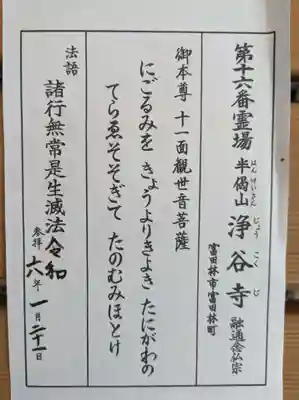 第十六番霊場
半偈山 浄谷寺 融通念仏宗
はんげいさん じょうこくじ
富田林市富田林町
御本尊 十一面觀世音菩薩
にごるみを きょうよりきよき たにがわの
てらゑそそぎて たのむみほとけ
法語
諸行無常是生滅法
参拝 令和六年一月二十一日